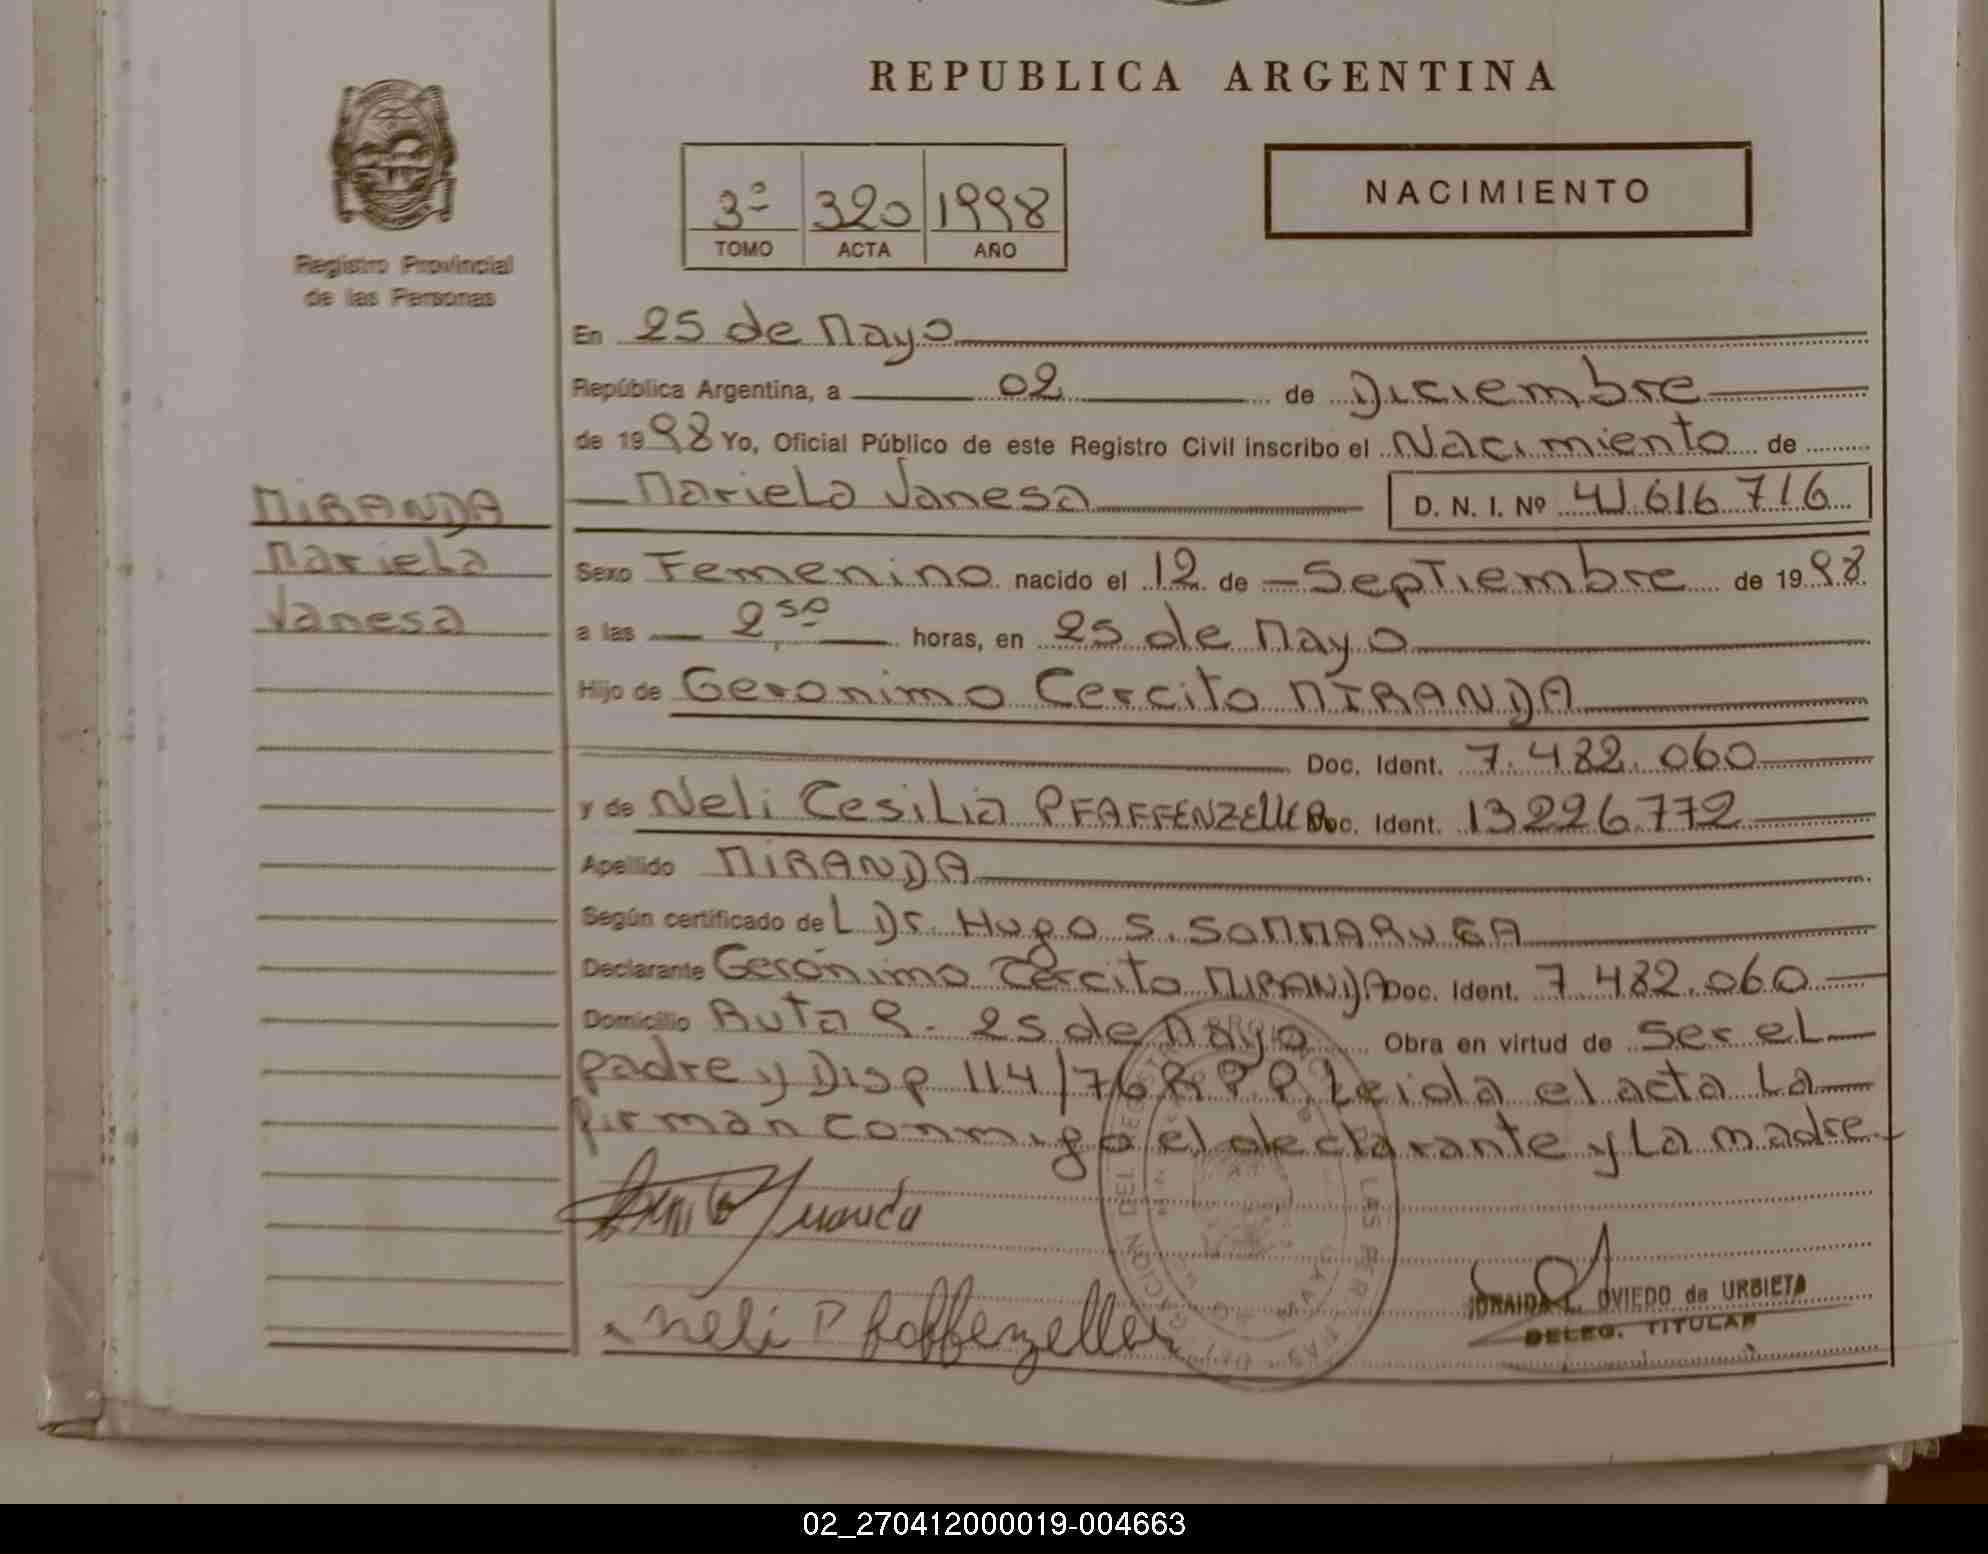 REPUBLICA ARGENTINA
3º 320 1998
TOMO ACTA AÑO
NACIMIENTO
Registro Provincial
de las Personas
MIRANDA
Mariela
Vanesa
En 25 de Mayo
República Argentina, a 02 de Diciembre
de 1998 Yo, Oficial Público de este Registro Civil inscribo el Nacimiento de
Mariela Vanesa D. N. I. Nº 41.616.716
Sexo Femenino nacido el 12 de Septiembre de 1998
a las 2,50 horas, en 25 de Mayo
Hijo de Geronimo Cercito MIRANDA
Doc. Ident. 7.482.060
y de Neli Cesilia PFAFFENZELLER Doc. Ident. 13226.772
Apellido MIRANDA
Según certificado del Dr. Hugo S. SOMMARUGA
Declarante Gerónimo Cercito MIRANDA Doc. Ident. 7.482.060
Domicilio Ruta 8. 25 de Mayo Obra en virtud de ser el
padre y Disp 114/76 R.P.P. Leida el acta La
firman conmigo el declarante y La madre.
Miranda
Neli Pfaffenzeller
L. OVIEDO de URBIETA
DELEG. TITULAR
02_270412000019-004663